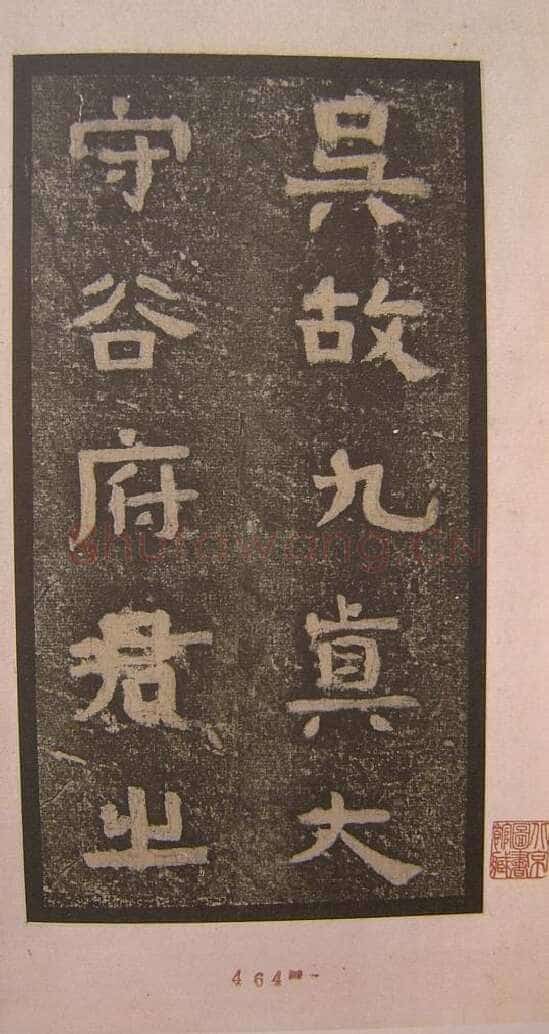 吳故九真大
守谷府君之
shufawang.cn
464